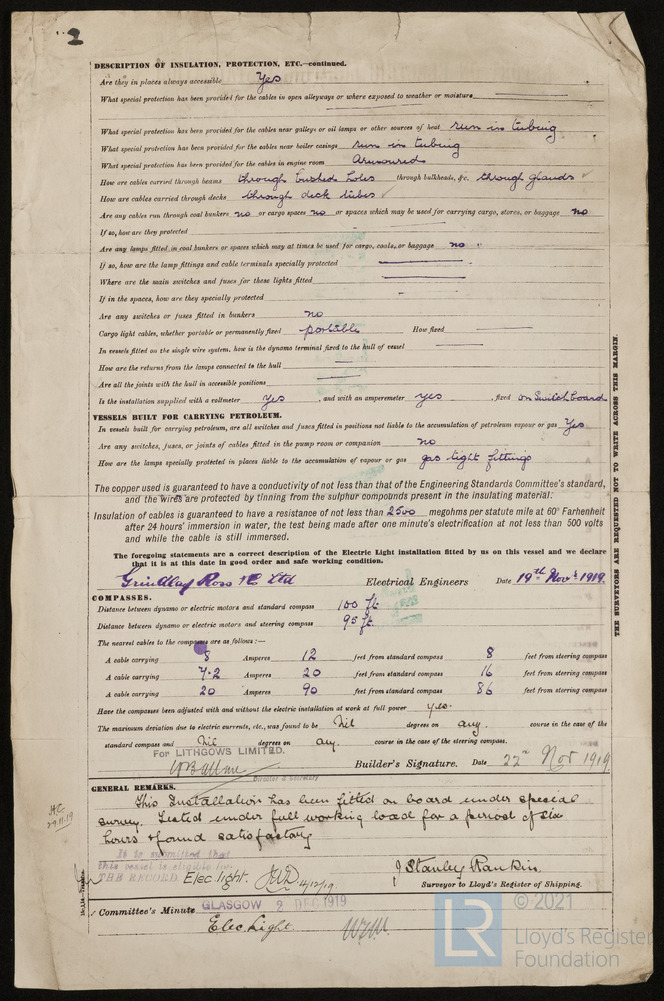 2
DESCRIPTION OF INSULATION, PROTECTION, ETC.—continued.
Are they in places always accessible Yes
What special protection has been provided for the cables in open alleyways or where exposed to weather or moisture
What special protection has been provided for the cables near galleys or oil lamps or other sources of heat run in tubing
What special protection has been provided for the cables near boiler casings run in tubing
What special protection has been provided for the cables in engine room Armoured
How are cables carried through beams through bushed holes through bulkheads, &c. through glands ✓
How are cables carried through decks through deck tubes ✓
Are any cables run through coal bunkers no or cargo spaces no or spaces which may be used for carrying cargo, stores, or baggage no
If so, how are they protected
Are any lamps fitted in coal bunkers or spaces which may at times be used for cargo, coals, or baggage no
If so, how are the lamp fittings and cable terminals specially protected
Where are the main switches and fuses for these lights fitted
If in the spaces, how are they specially protected
Are any switches or fuses fitted in bunkers no
Cargo light cables, whether portable or permanently fixed portable How fixed
In vessels fitted on the single wire system, how is the dynamo terminal fixed to the hull of vessel
How are the returns from the lamps connected to the hull
Are all the joints with the hull in accessible positions
Is the installation supplied with a voltmeter yes , and with an amperemeter yes , fixed on Switchboard
VESSELS BUILT FOR CARRYING PETROLEUM.
In vessels built for carrying petroleum, are all switches and fuses fitted in positions not liable to the accumulation of petroleum vapour or gas Yes
Are any switches, fuses, or joints of cables fitted in the pump room or companion no
How are the lamps specially protected in places liable to the accumulation of vapour or gas gas tight fittings
The copper used is guaranteed to have a conductivity of not less than that of the Engineering Standards Committee's standard,
and the wires are protected by tinning from the sulphur compounds present in the insulating material:
Insulation of cables is guaranteed to have a resistance of not less than 2500 megohms per statute mile at 60° Farhenheit
after 24 hours' immersion in water, the test being made after one minute's electrification at not less than 500 volts
and while the cable is still immersed.
The foregoing statements are a correct description of the Electric Light installation fitted by us on this vessel and we declare
that it is at this date in good order and safe working condition.
Grindlay Ross & Co Ltd Electrical Engineers Date 19th Novr. 1919.
COMPASSES.
Distance between dynamo or electric motors and standard compass 100 ft.
Distance between dynamo or electric motors and steering compass 95 ft.
The nearest cables to the compasses are as follows:—
A cable carrying 8 Amperes 12 feet from standard compass 8 feet from steering compass
A cable carrying 7.2 Amperes 20 feet from standard compass 16 feet from steering compass
A cable carrying 20 Amperes 90 feet from standard compass 86 feet from steering compass
Have the compasses been adjusted with and without the electric installation at work at full power yes.
The maximum deviation due to electric currents, etc., was found to be Nil degrees on any. course in the case of the
standard compass and Nil degrees on any. course in the case of the steering compass.
For LITHGOWS LIMITED.
Director & Secretary
Builder's Signature. Date 22nd Nov 1919
GENERAL REMARKS.
This Installation has been fitted on board under special
survey. Tested under full working load for a period of six
hours & found satisfactory
29.11.19
It is submitted that
this vessel is eligible for
THE RECORD. Elec light. 4/12/19.
J Stanley Rankin.
Surveyor to Lloyd's Register of Shipping.
Committee's Minute GLASGOW 2 DEC 1919
Elec. Light.
THE SURVEYORS ARE REQUESTED NOT TO WRITE ACROSS THIS MARGIN.
LR
© 2021
Lloyd's Register
Foundation